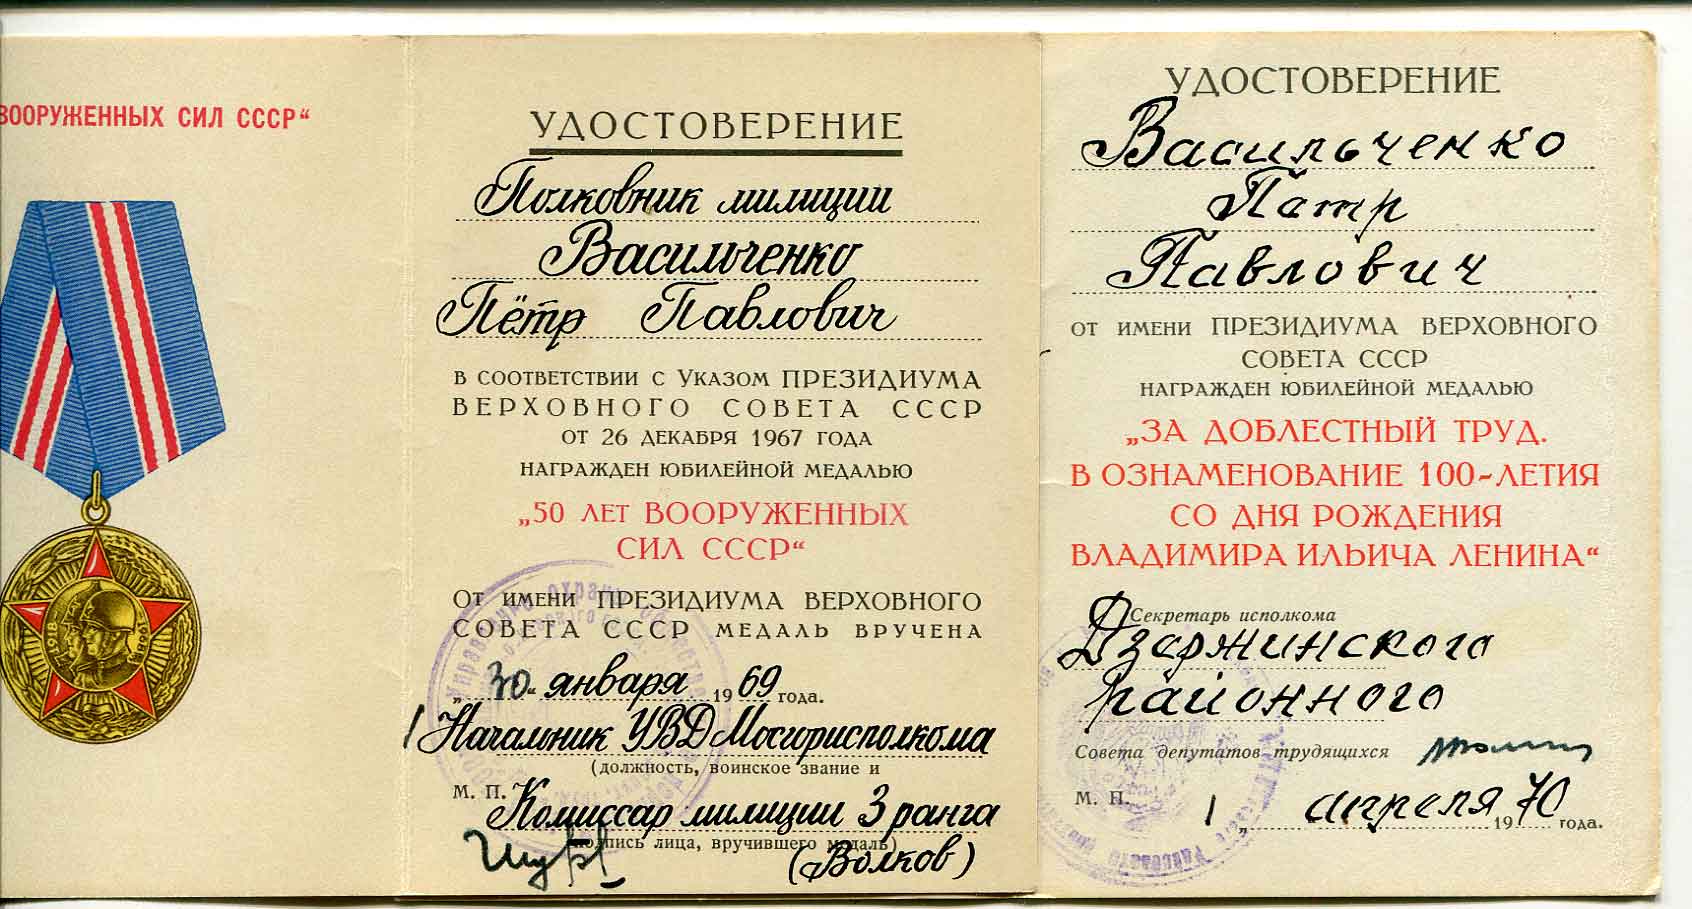 ВООРУЖЕННЫХ СИЛ СССР“
1918
1968
УДОСТОВЕРЕНИЕ
Полковник милиции
Васильченко
Пётр Павлович
В СООТВЕТСТВИИ С УКАЗОМ ПРЕЗИДИУМА
ВЕРХОВНОГО СОВЕТА СССР
ОТ 26 ДЕКАБРЯ 1967 ГОДА
НАГРАЖДЕН ЮБИЛЕЙНОЙ МЕДАЛЬЮ
„50 ЛЕТ ВООРУЖЕННЫХ
СИЛ СССР“
ОТ ИМЕНИ ПРЕЗИДИУМА ВЕРХОВНОГО
СОВЕТА СССР МЕДАЛЬ ВРУЧЕНА
„30“ января 1969 года.
Начальник УВД Мосгорисполкома
(должность, воинское звание и
М. П. Комиссар милиции 3 ранга
подпись лица, вручившего медаль)
(Волков)
УДОСТОВЕРЕНИЕ
Васильченко
Пётр
Павлович
ОТ ИМЕНИ ПРЕЗИДИУМА ВЕРХОВНОГО
СОВЕТА СССР
НАГРАЖДЕН ЮБИЛЕЙНОЙ МЕДАЛЬЮ
„ЗА ДОБЛЕСТНЫЙ ТРУД.
В ОЗНАМЕНОВАНИЕ 100-ЛЕТИЯ
СО ДНЯ РОЖДЕНИЯ
ВЛАДИМИРА ИЛЬИЧА ЛЕНИНА“
Секретарь исполкома
Дзержинского
районного
Совета депутатов трудящихся
М. П. 1 „ апреля 1970 года.